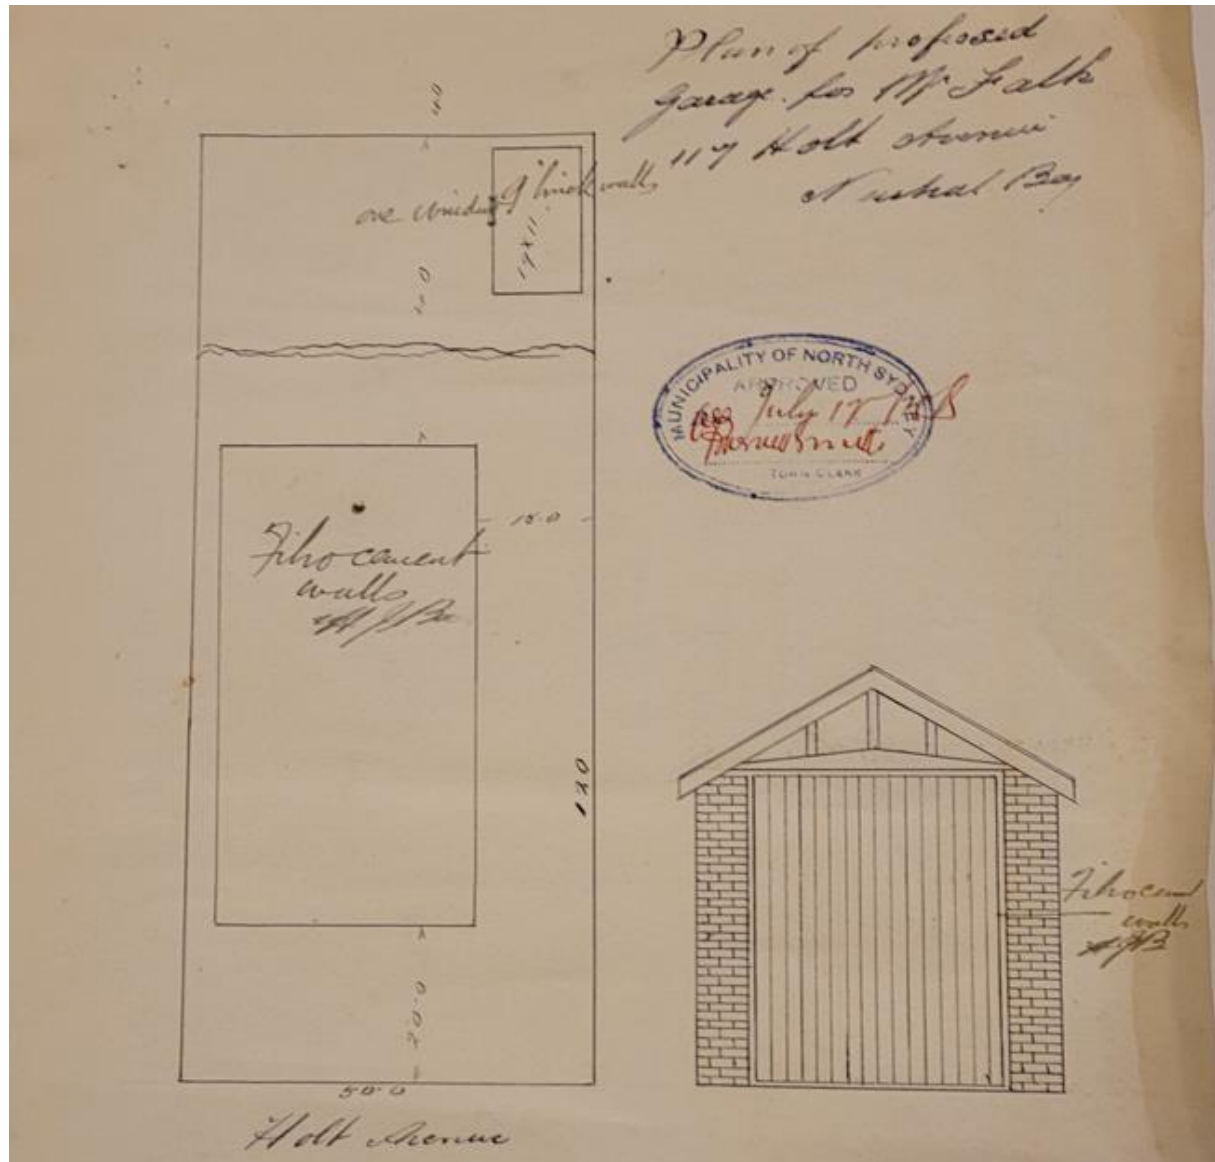 Plan of proposed
Garage for Mr Falk
117 Holt Avenue
Neutral Bay
40
one window 9" brick walls
17 x 11
MUNICIPALITY OF NORTH SYDNEY
APPROVED
July 17
TOWN CLERK
15.0
Fibrocement
walls
120
Fibrocement
walls
20.0
50.0
Holt Avenue